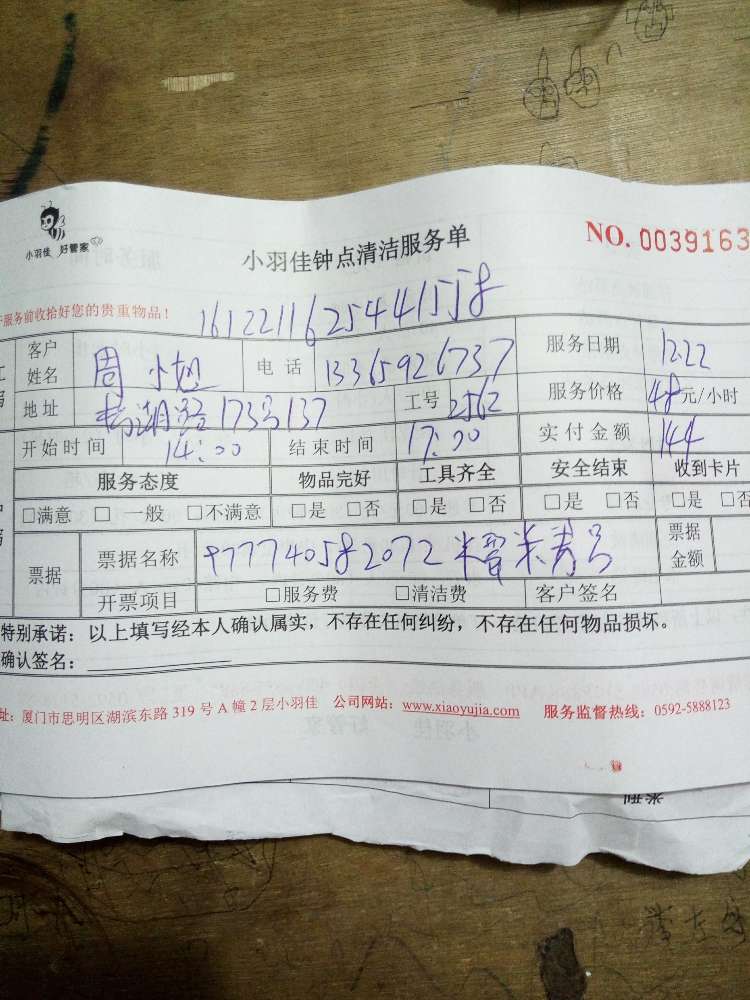 小羽佳 好管家
小羽佳钟点清洁服务单
NO. 0039163
服务前收拾好您的贵重物品!
1612211625441558
客户姓名 周小姐 电话 13365926737 服务日期 12.22
地址 湖路173号137 工号 2562 服务价格 48元/小时
开始时间 14:00 结束时间 17:00 实付金额 144
服务态度 物品完好 工具齐全 安全结束 收到卡片
□满意 □一般 □不满意 □是 □否 □是 □否 □是 □否 □是 □否
票据 票据名称 977740582072 票据金额
开票项目 □服务费 □清洁费 客户签名
特别承诺:以上填写经本人确认属实,不存在任何纠纷,不存在任何物品损坏。
确认签名:
址:厦门市思明区湖滨东路 319 号 A 幢 2 层小羽佳 公司网站:www.xiaoyujia.com 服务监督热线:0592-5888123